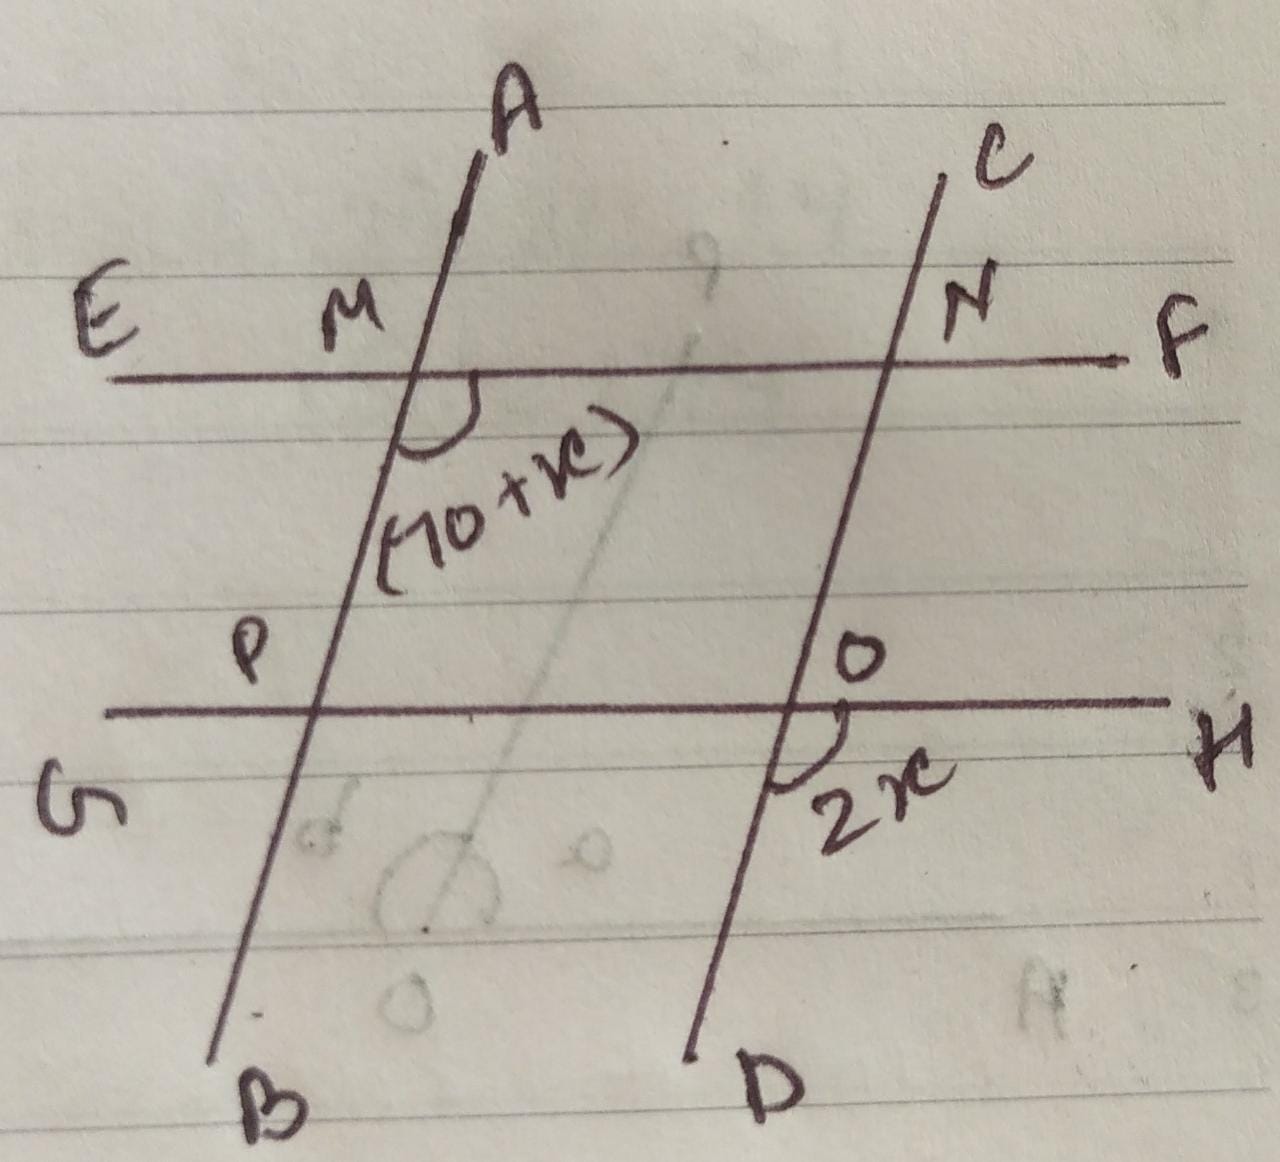 A
C
E M N F
(70+x)
P O
G H
2x
B D